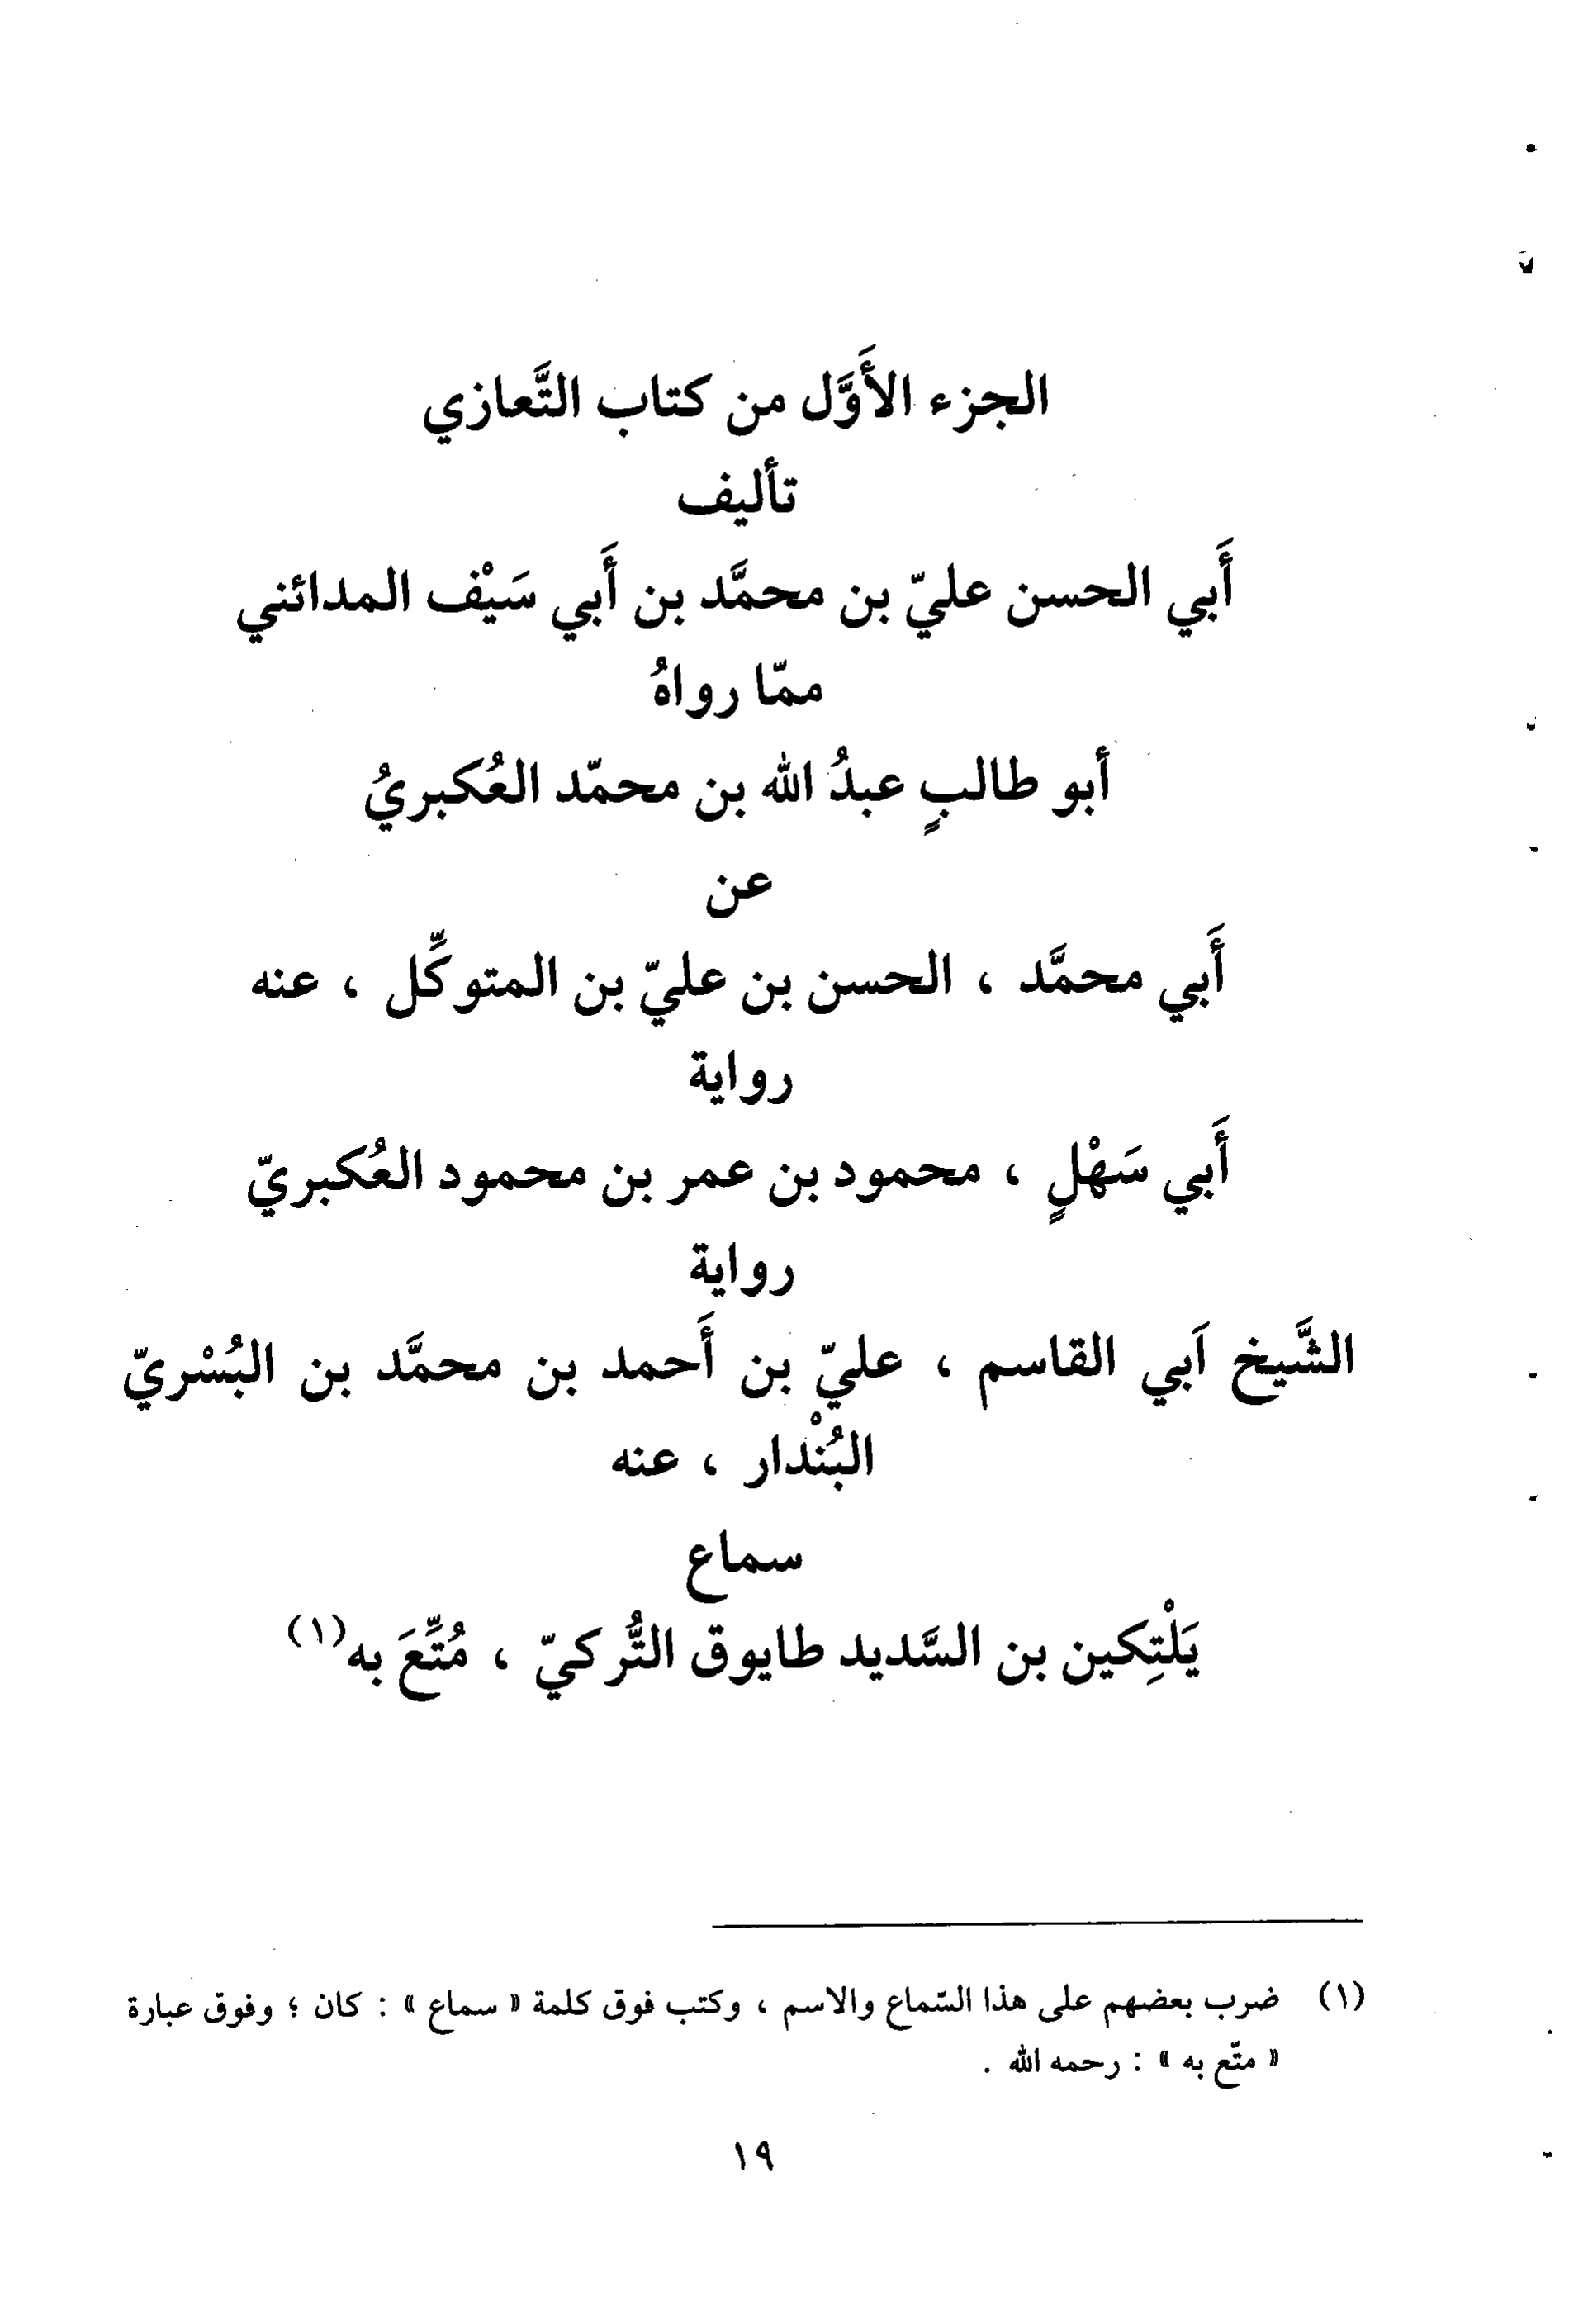 الجزء الأَوَّل من كتاب التَّعازي
تأليف
أَبي الحسن عليّ بن محمَّد بن أَبي سَيْف المدائني
ممّا رواهُ
أبو طالبٍ عبدُ الله بن محمّد العُكبريُ
عن
أَبي محمَّد ، الحسن بن عليّ بن المتوكِّل ، عنه
رواية
أَبي سَهْلٍ ، محمود بن عمر بن محمود العُكبريّ
رواية
الشَّيخ اَبي القاسم ، عليّ بن أَحمد بن محمَّد بن البُسْريّ
البُنْدار ، عنه
سماع
يَلْتِكين بن السَّديد طايوق التُّركيّ ، مُتِّعَ به(١)
(١) ضرب بعضهم على هذا السّماع والاسم ، وكتب فوق كلمة « سماع » : كان ؛ وفوق عبارة
« متّع به » : رحمه الله .
١٩